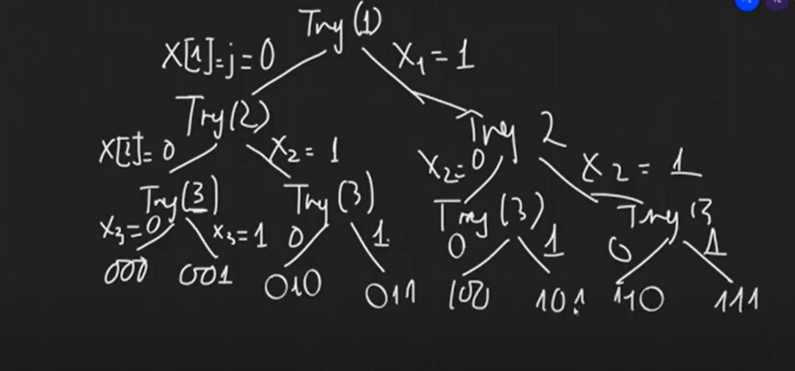 Try(1)
X[1]=j=0
X₁=1
Try(2)
Try 2
X[2]=0
X₂=1
X₂=0
X₂=1
Try(3)
Try(3)
Try(3)
Try 3
X₃=0
X₃=1
0
1
0
1
0
1
000
001
010
011
100
101
110
111